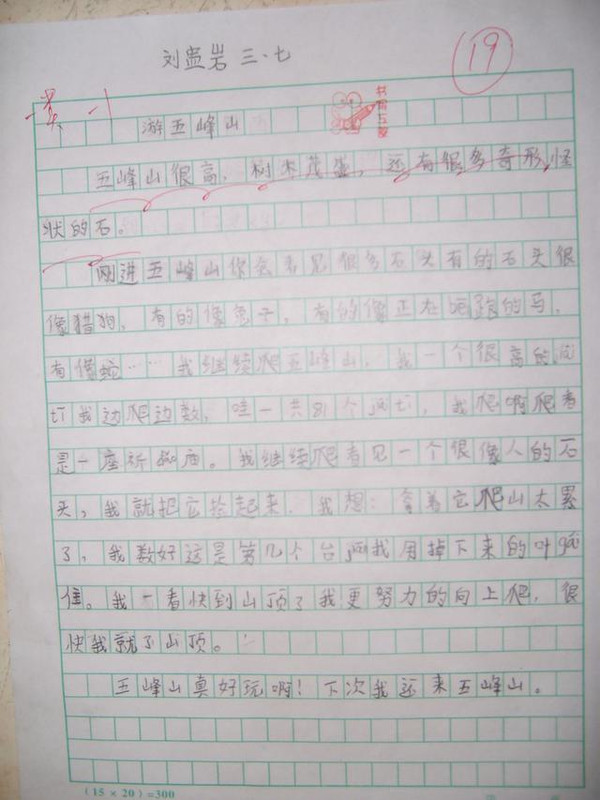 刘益岩 三·七
19
游五峰山
五峰山很高，树木茂盛，还有很多奇形怪
状的石。
刚进五峰山你会看见很多石头有的石头很
像猎狗，有的像兔子，有的像正在的马，
有像蛇……我继续爬五峰山，我一个很高的
我边爬边数，哇一共81个，我爬啊爬看
是一座祈福庙。我继续爬看见一个很像人的石
头，我就把它捡起来，我想：拿着它爬山太累
了，我数好这是第几个台我用掉下来的叶
住。我一看快到山顶了我更努力的向上爬，很
快我就了山顶。
五峰山真好玩啊！下次我还来五峰山。
(15×20)=300